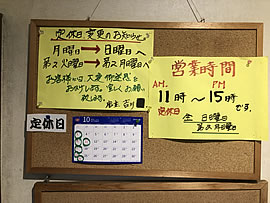 定休日変更のお知らせ
月曜日→日曜日へ
第2火曜日→第2月曜日へ
お客様には大変御迷惑を
おかけします。宜しくお願い
致します。
営業時間
AM. PM
11時〜15時
です。
定休日
全日曜日
第2月曜日
定休日
10